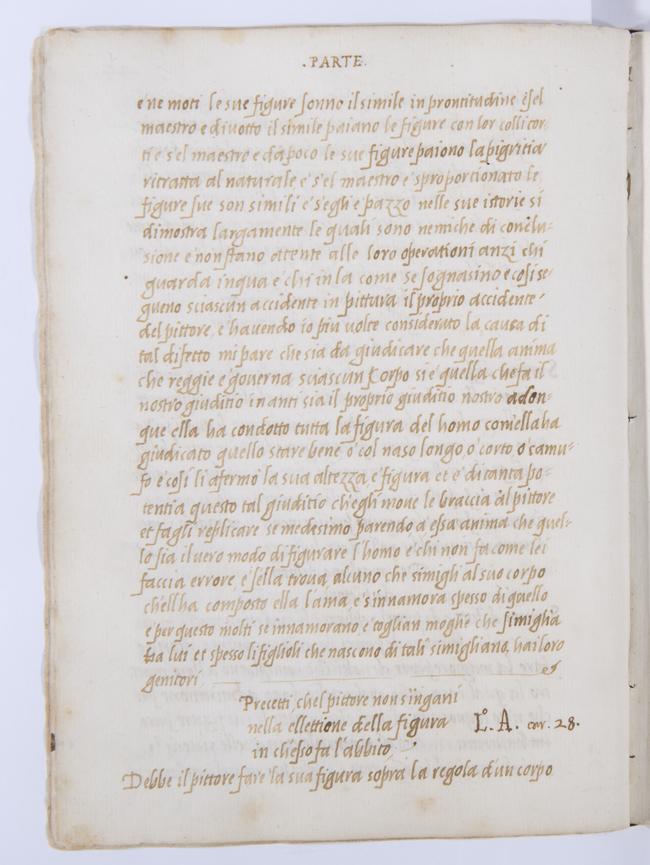 .PARTE.
e ne moti le sue figure sonno il simile in prontitudine e sel
maestro e divotto il simile paiano le figure con lor colli tor
ti e s'el maestro e da poco le sue figure paiono la pigritia
ritratta al naturale e s'el maestro e sproportionato le
figure sue son simili e s'egli e pazzo nelle sue istorie si
dimostra largamente le quali sono nemiche di conclu-
sione e non stano attente alle loro operationi anzi chi
guarda in qua e chi in la come se sognasino e cosi se-
gueno sciascun accidente in pittura il proprio accidente
del pittore, e havendo io piu volte considerato la causa di
tal difetto mi pare che sia da giudicare che quella anima
che reggie e governa sciascun Corpo si e quella che fa il
nostro giuditio inanti sia il proprio giuditio nostro adon-
que ella ha condotto tutta la figura del homo com'ella ha
giudicato quello stare bene o col naso longo, o corto, o camu-
fo e cosi li afermo la sua altezza, e figura et e di tanta po-
tentia questo tal giuditio ch'egli move le braccia al pittore
et fagli replicare se medesimo parendo a essa anima che quel-
lo sia il vero modo di figurare l'homo e chi non fa come lei
faccia errore, e s'ella trova alcuno che simigli al suo corpo
ch'ell'ha composto ella l'ama, e s'innamora spesso di quello
e per questo molti se innamorano e toglian moglie che simiglia
ha lui et spesso li figlioli che nascono di tali simigliano, hai loro
genitori
Precetti, che'l pittore non s'ingani
nella ellettione della figura L.A. car. 28.
in ch'esso fa l'abbito,
Debbe il pittore fare la sua figura sopra la regola d'un corpo